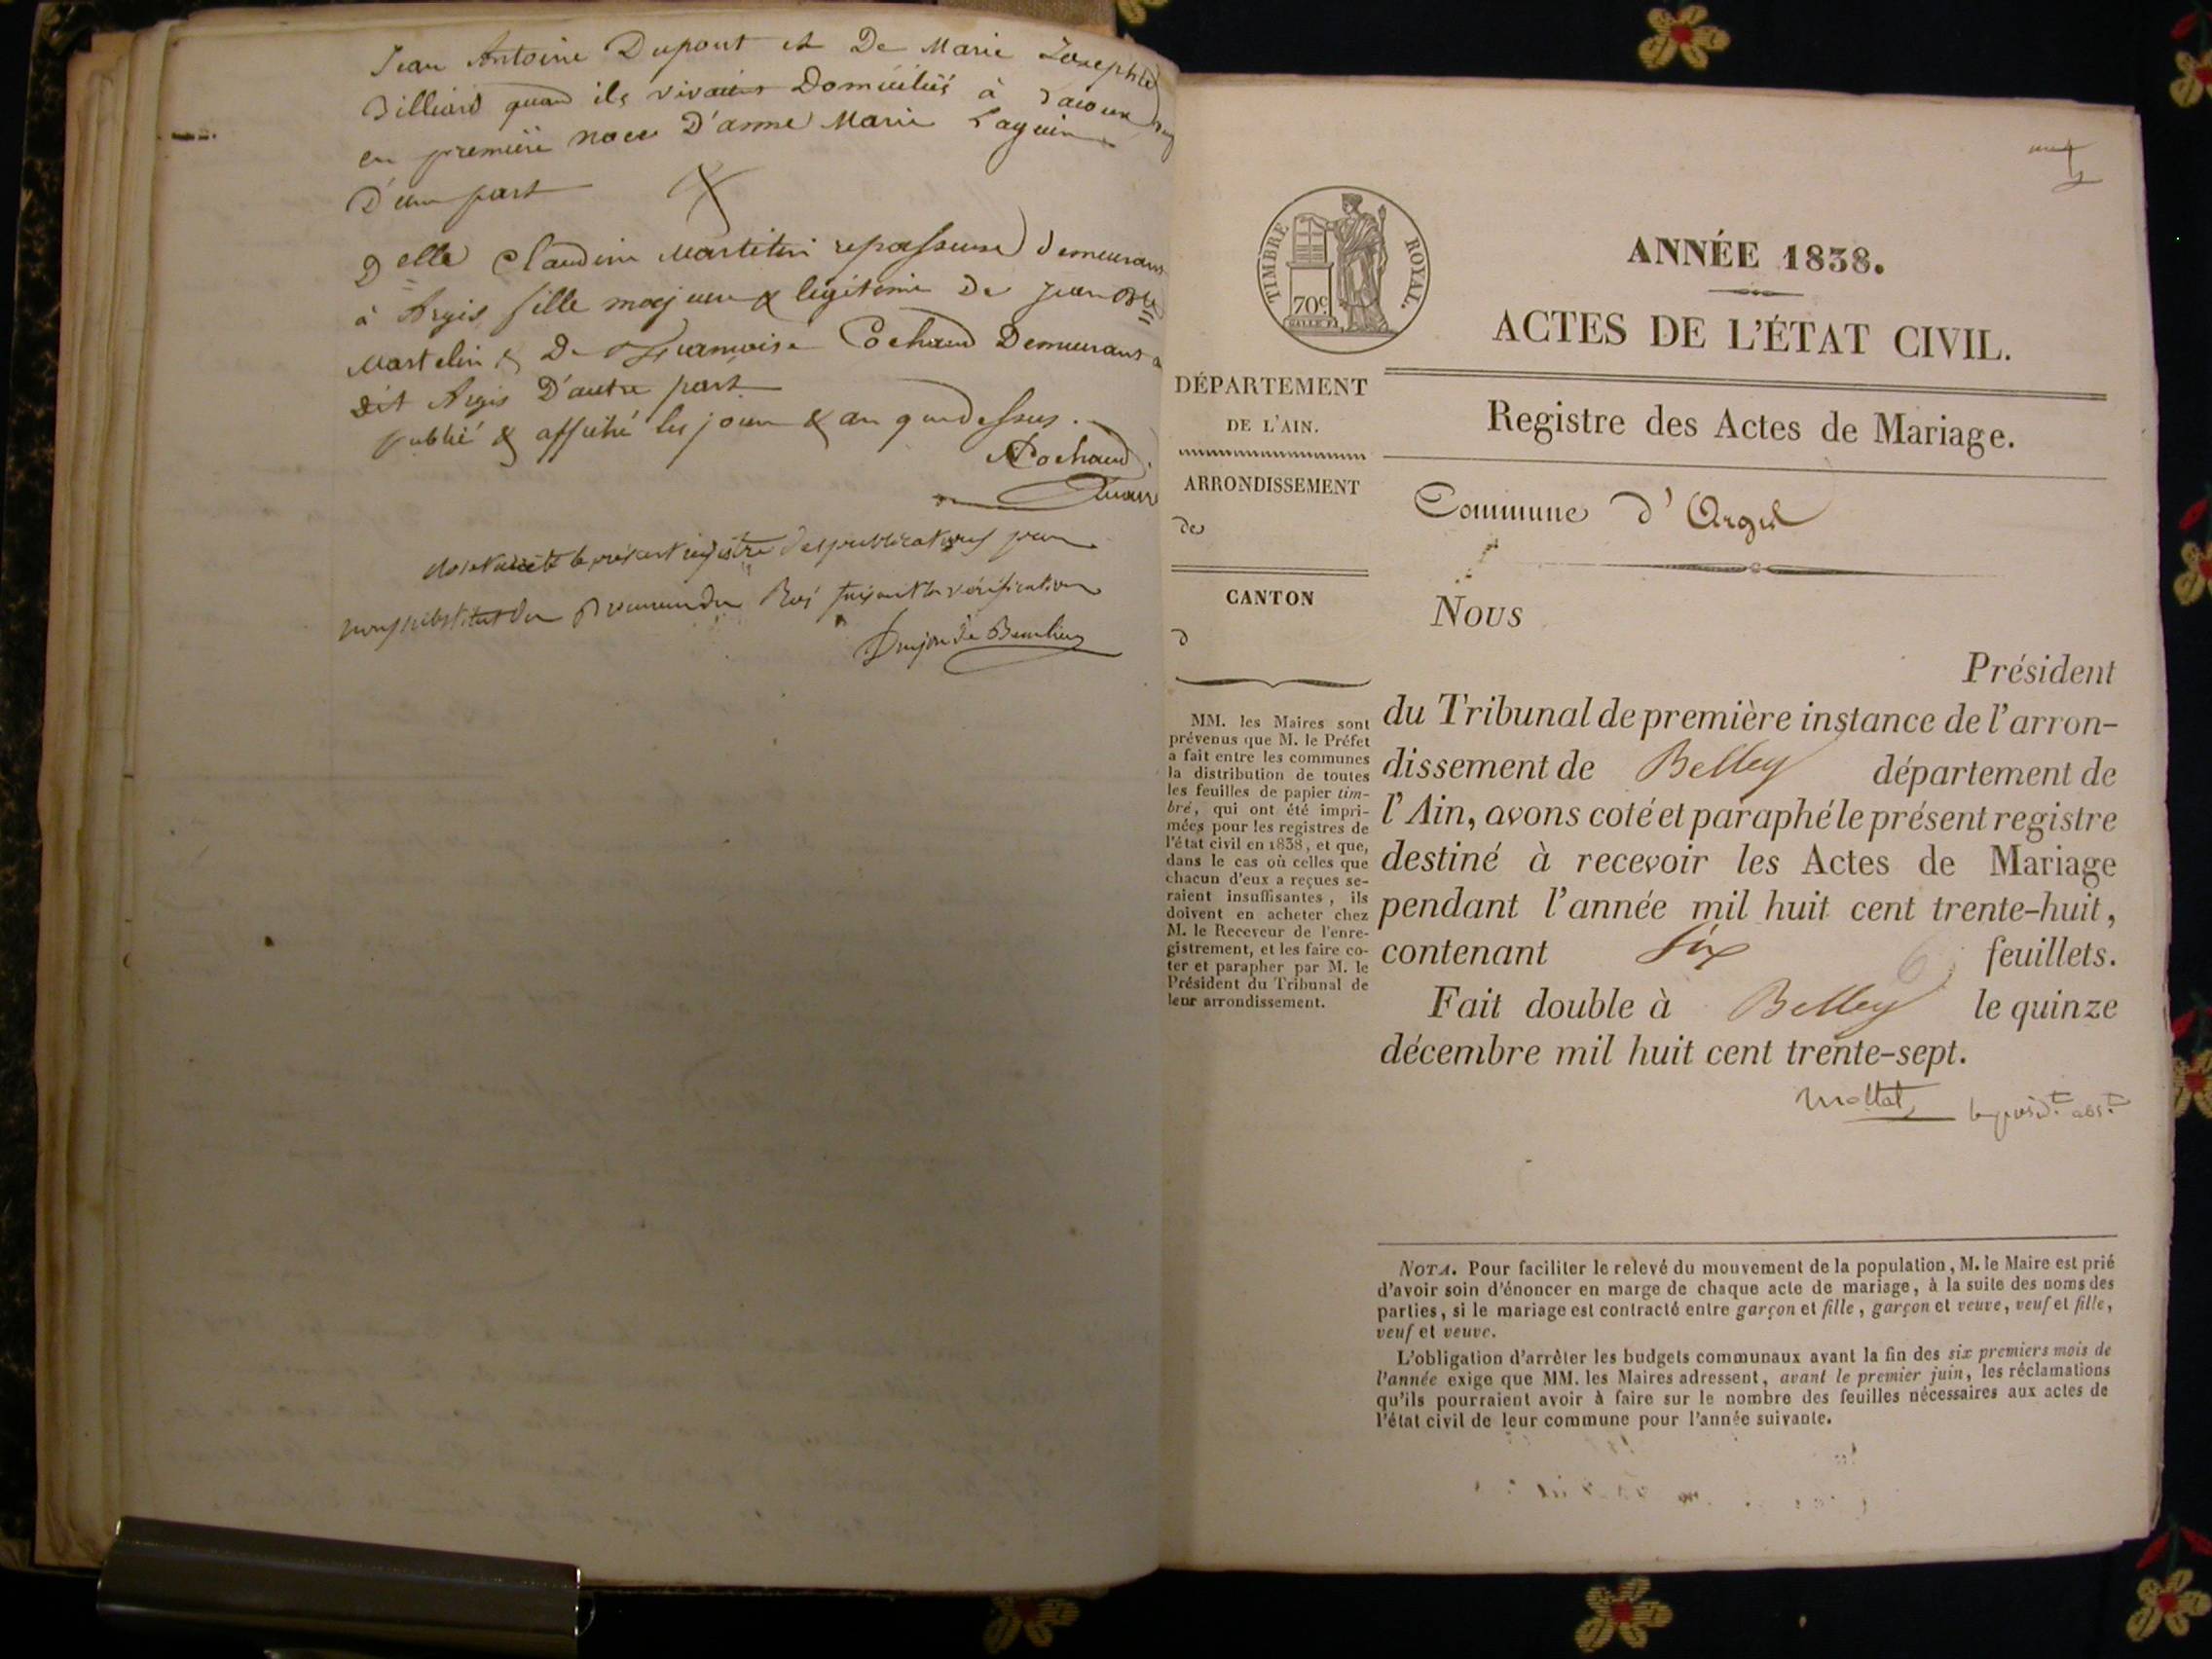 Jean Antoine Dupont et De Marie Josephte
Billiard quand ils vivaient Domiciliés à
en première noce D'anne Marie
D'une part
Delle Claudine Martelin repasseuse demeurant
à Argis fille majeure & légitime de Jean Bte
Martelin & De Françoise Cochand Demeurant à
dit Argis D'autre part
publié & affiché les jour & an que dessus.
Cochand
maire
le présent registre des publications par
nous substitut du Procureur du Roi faisant la vérification
Dujon de Beaulieu
une
TIMBRE ROYAL.
70c.
ANNÉE 1838.
ACTES DE L'ÉTAT CIVIL.
Registre des Actes de Mariage.
DÉPARTEMENT
DE L'AIN.
ARRONDISSEMENT
de
CANTON
d
MM. les Maires sont
prévenus que M. le Préfet
a fait entre les communes
la distribution de toutes
les feuilles de papier tim-
bré, qui ont été impri-
mées pour les registres de
l'état civil en 1838, et que,
dans le cas où celles que
chacun d'eux a reçues se-
raient insuffisantes, ils
doivent en acheter chez
M. le Receveur de l'enre-
gistrement, et les faire co-
ter et parapher par M. le
Président du Tribunal de
leur arrondissement.
Commune d'Argis
Nous
Président
du Tribunal de première instance de l'arron-
dissement de Belley département de
l'Ain, avons coté et paraphé le présent registre
destiné à recevoir les Actes de Mariage
pendant l'année mil huit cent trente-huit,
contenant six 6 feuillets.
Fait double à Belley le quinze
décembre mil huit cent trente-sept.
Mottat le présidt abst
NOTA. Pour faciliter le relevé du mouvement de la population, M. le Maire est prié
d'avoir soin d'énoncer en marge de chaque acte de mariage, à la suite des noms des
parties, si le mariage est contracté entre garçon et fille, garçon et veuve, veuf et fille,
veuf et veuve.
L'obligation d'arrêter les budgets communaux avant la fin des six premiers mois de
l'année exige que MM. les Maires adressent, avant le premier juin, les réclamations
qu'ils pourraient avoir à faire sur le nombre des feuilles nécessaires aux actes de
l'état civil de leur commune pour l'année suivante.